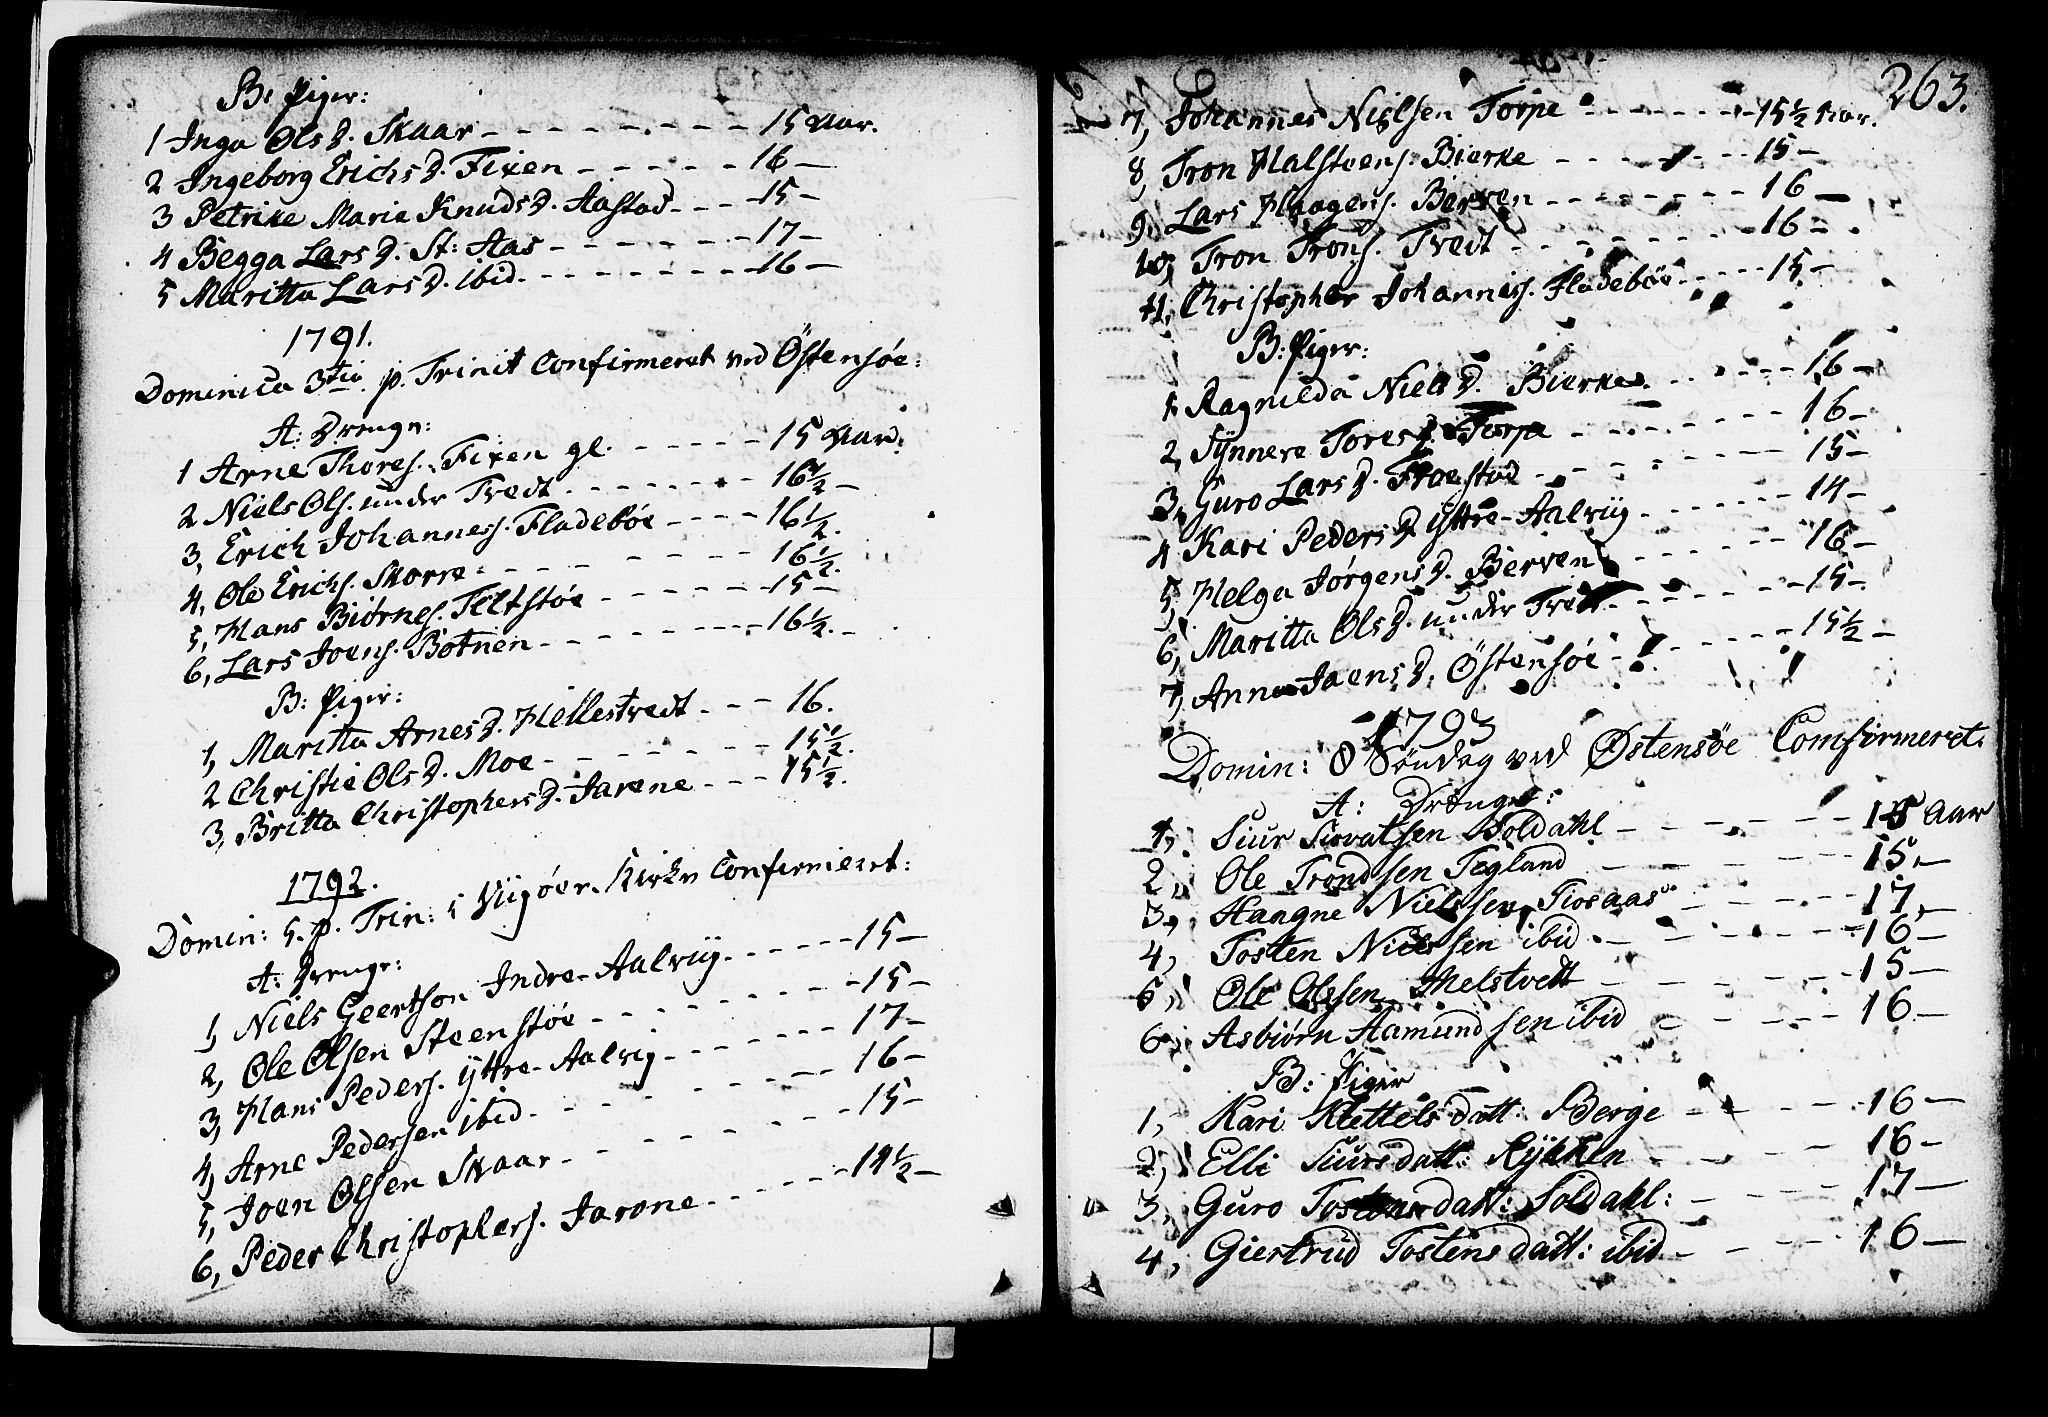 B: Piger:
1 Inga OlsD. Skaar - - - - - - - - 15 Aar.
2 Ingeborg ErichsD. Fixen - - - - - 16 —
3 Petrike Maria KnudsD. Aastad - - - 15 —
4 Begga LarsD. St: Aas - - - - - - - 17 —
5 Maritta LarsD. ibid. - - - - - - - - 16 —
1791.
Dominica 3tia p. Trinit Confirmeret ved Östensøe:
A: Drenge:
1 Arne Thores. Fixen gl. - - - - - - 15 Aar.
2 Niels Ols. under Tvedt - - - - - - - 16½ —
3, Erich Johanness. Fladebøe - - - - 16½.
4, Ole Erichs. Skorre - - - - - - - 16½.
5, Hans Biørnes. Teltstøe - - - - - 15 —
6, Lars Joens. Botnen - - - - - - - - 16½. -
B: Piger:
1, Maritta ArnesD. Hellestvedt - - - 16.
2 Christie OlsD. Moe - - - - - - - 15½.
3, Britta ChristophersD. Jarene - - - 15½.
1792.
Domin: 5. p. Trin: i Viigøer Kirke Confirmeret:
A: Drenge:
1, Niels Geertson Indre-Aalviig - - - - - 15 —
2, Ole Olsen Steenstøe - - - - - - - - 15 —
3, Hans Peders. Yttre-Aalvig - - - - - - 17 —
4, Arne Pedersen ibid - - - - - - - - 16 —
5, Joen Olsen Skaar - - - - - - - - 15 —
6, Peder Christophers. Jarone - - - - - 14½ —
263.
7, Johannes Nielsen Torpe - - - - - - 15½ Aar.
8, Tron Halstens. Bierke - - - - - - 15 —
9, Lars Haagens. Berven - - - - - - - 16 —
10, Tron Trons. Tvedt - - - - - - - - 16 - -
11, Christopher Johanniss. Fladebøe - - - - 15 —
B: Piger:
1 Ragnilda NielsD. Bierke - - - - - 16 —
2, Synnere ToresD. Torpe - - - - - - - 16 —
3, Guro LarsD. - - - - - - - 15 —
4 Kari PedersD Yttre-Aalviig - - - - - 14 —
5, Helga JørgensD. Berven - - - - - - 16 —
6, Maritta OlsD. under Tvedt - - - - - - 15 —
7, Anna JoensD. Östensøe - - - - - - 15½ —
1793
Domin: 8 Söndag ved Østensøe Comfirmeret.
A: Drenge:
1, Siur Siovatsen Soldahl - - - - - - 15 Aar
2, Ole Trondsen Tegland - - - - - - 15, —
3, Haagne Nielssen Tiosaas - - - - - 17, —
4, Tosten Nielssen ibid - - - - - - - 16 —
5, Ole Olssen Melstvedt - - - - - - 15 —
6, Asbiørn Aamundsen ibid - - - - - - 16 —
B: Piger
1, Kari Klettelsdatt: Berge - - - - - 16 —
2, Elli Siursdatt: Rykken - - - - - 16 —
3, Guro Tostensdatt: Soldahl: - - - - - 17 —
4, Giertrud Tostensdatt: ibid - - - - - 16 —